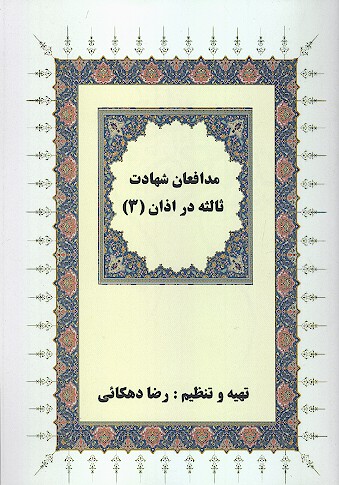 مدافعان شهادت
ثالثه در اذان (۳)
تهیه و تنظیم : رضا دهکائی